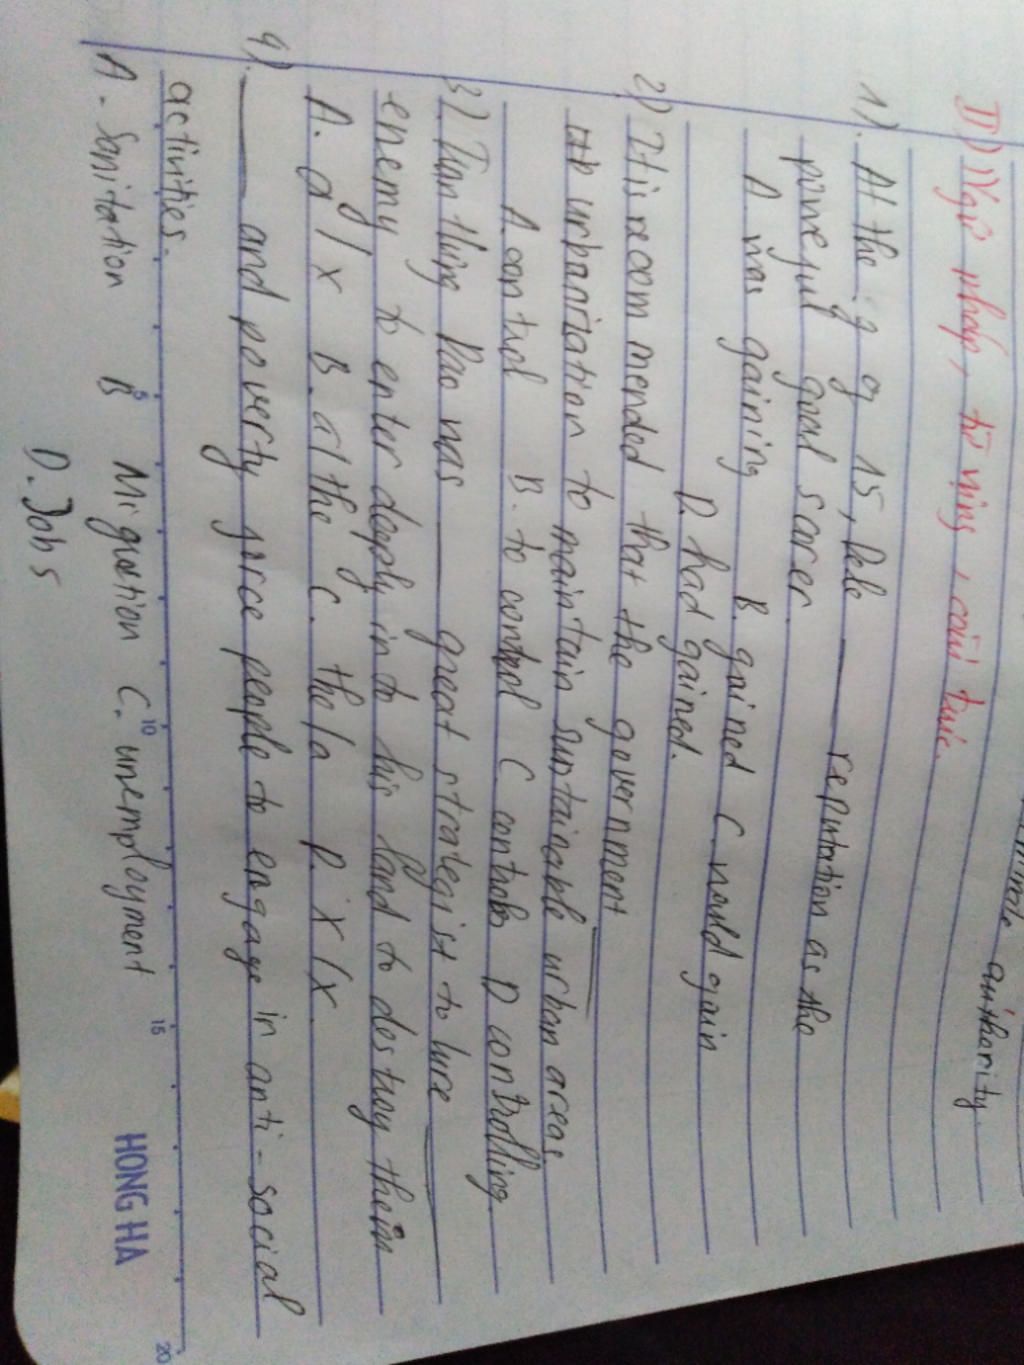 authority.
II) Ngữ pháp, từ vựng, cấu trúc.
1). At the g of 15, Pele ____ reputation as the
powerful goal scorer.
A was gaining B. gained C would gain
D. had gained.
2) It is recommended that the government ____
urbanisation to maintain sustainable urban areas.
A control B. to control C controls D controlling.
3) Tran Hung Dao was ____ great strategist to lure ____
enemy to enter deeply into his land to destroy them
A. a / x B. a / the C. the / a D. x / x.
4). ____ and poverty force people to engage in anti-social
activities.
A. Sanitation B Migration C. unemployment
D. Jobs
5 10 15 20
HONG HA